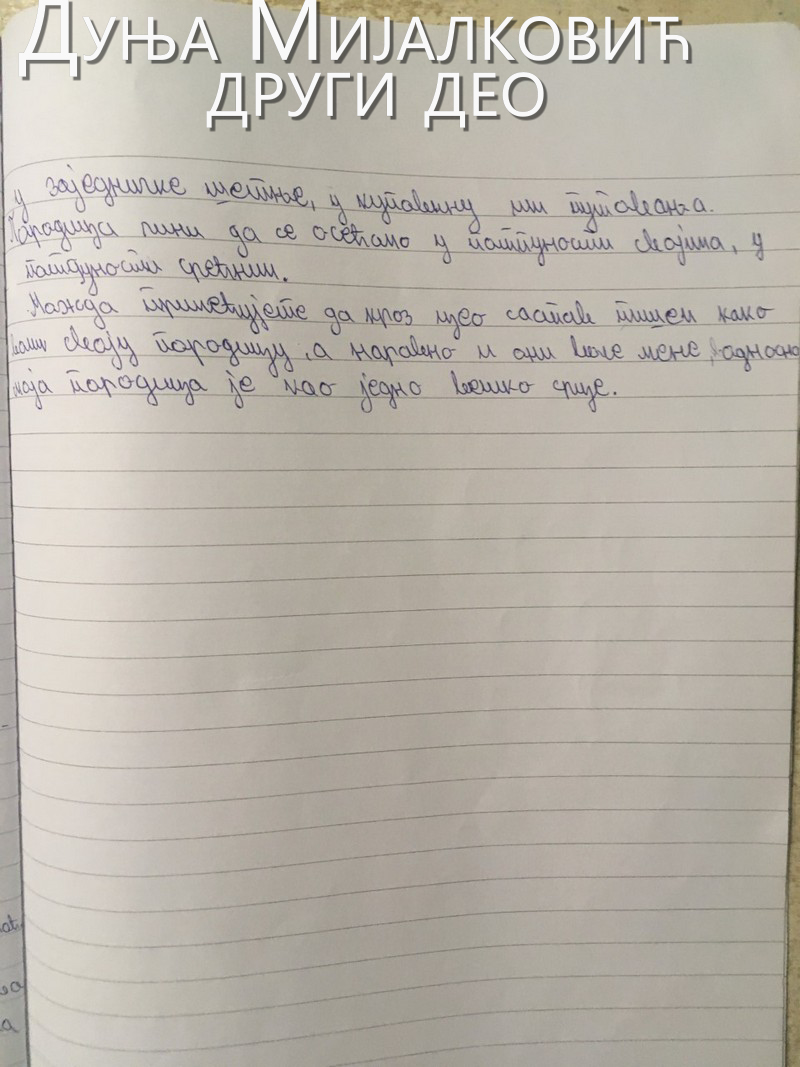 Дуња Мијалковић
други део
у заједничке шетње, у куповину или путовања.
Породица чини да се осећамо у потпуности својима, у
потпуности срећним.
Можда примећујете да кроз цео састав пишем како
волим своју породицу, а наравно и они воле мене, односно
моја породица је као једно велико срце.